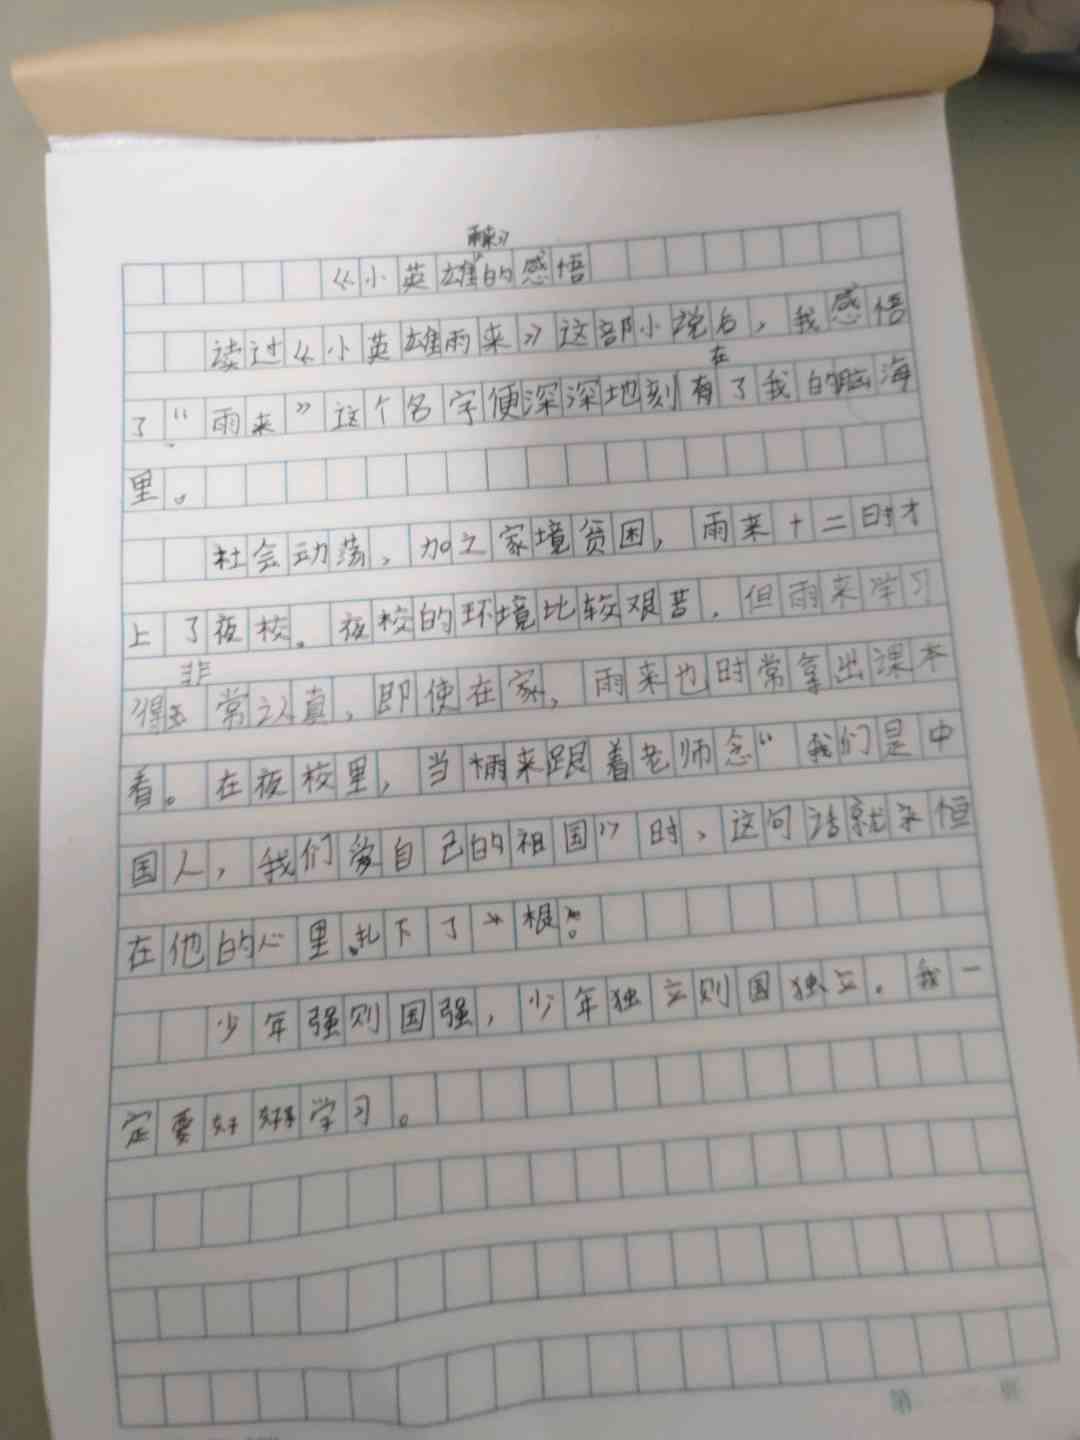 《小英雄雨来》的感悟
读过《小英雄雨来》这部小说后，我感悟
了“雨来”这个名字便深深地刻在了我的脑海
里。
社会动荡，加之家境贫困，雨来十二时才
上了夜校。夜校的环境比较艰苦，但雨来学习
得非常认真，即使在家，雨来也时常拿出课本
看。在夜校里，当雨来跟着老师念“我们是中
国人，我们爱自己的祖国”时，这句话就永恒
在他的心里扎下了根。
少年强则国强，少年独立则国独立。我一
定要好好学习。
第 页